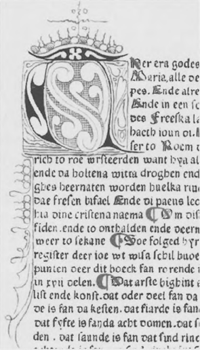 Her era godes
Maria, alle de
pes. Ende alre
Ende in een sc
des Freeska la
haeth ioun di.
ser to Roem
rich to roe wrsteerden want hya al
ende da holtena witta droghen end
ghes heernaten worden huelka riuc
dae fresen bifael Ende di paens leo
hia dine cristena naema Om dis
fiden. ende to onthalden ende deern
weer to sekane So folged hyr
register deer ioe wt wisa schil huoe
punten deer dit boeck fan ro rende i
in xvii delen. Dat arste bighint a
list ende konst. dat oder deel fan da
de is fan da kesten. dat fiarde is fan
dat fyfte is fanda acht domen. dat s
den. dat saunde is fan dat sind riuc